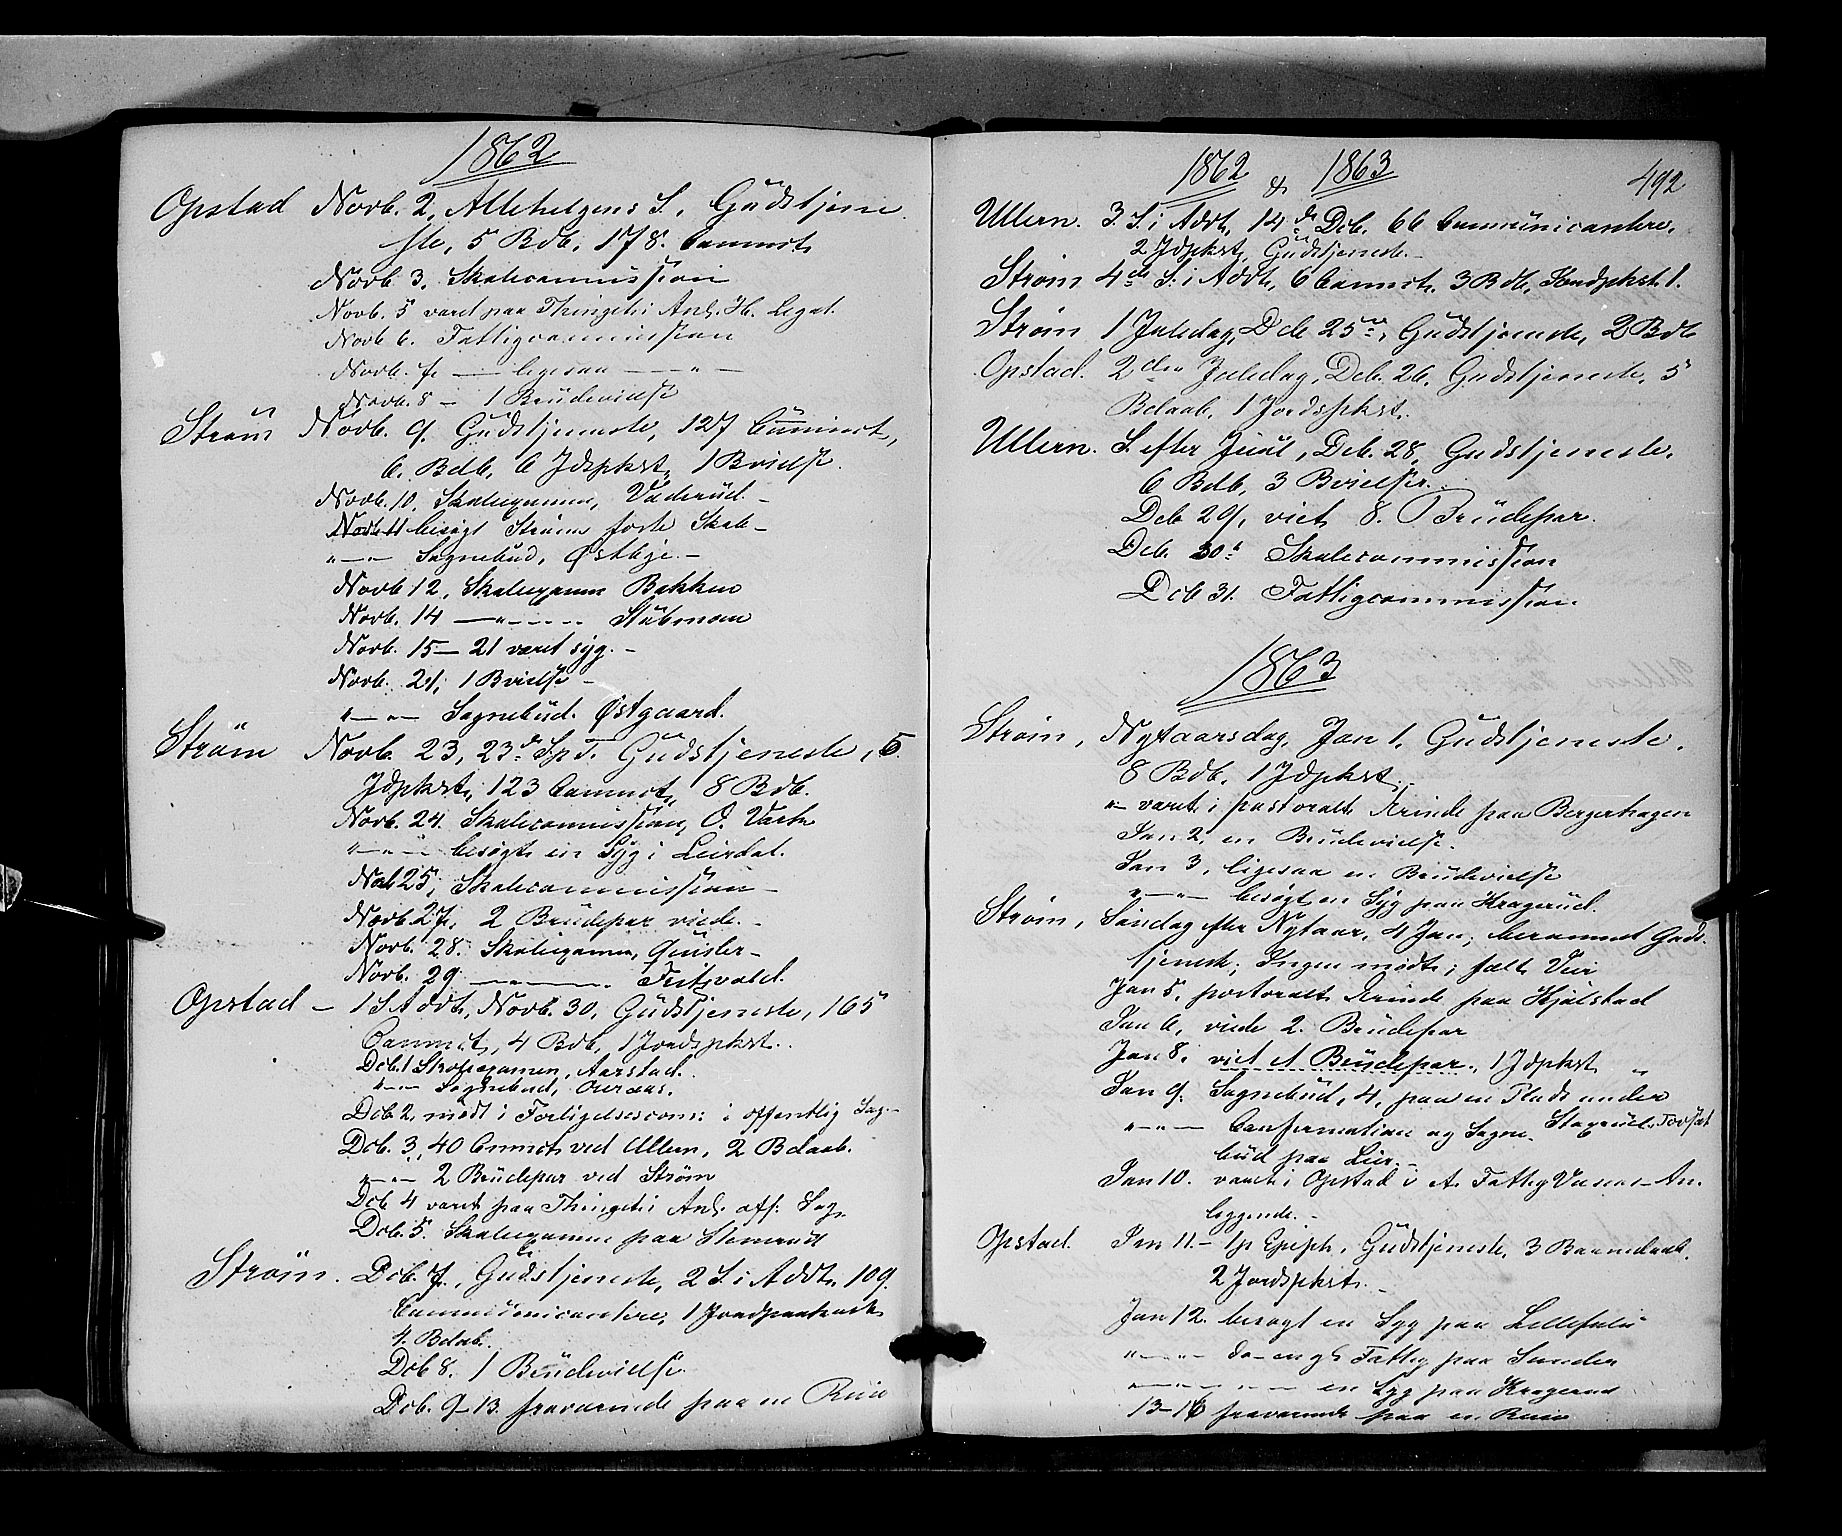 1862
Opstad Novb. 2, Allehelgens S., Gudstjene
ste, 5 Bdb, 178. Commct,
Novb. 3, Skolecommission
Novb. 5 varet paa Thinget i Anl. H. Legat.
Novb. 6. Fattigcommission
Novb. 7. — ligesaa — — „ —
Novb. 8 — 1 Brudevielse
Strøm Novb. 9. Gudstjeneste, 127 Commct,
6. Bdb, 6 Jdspkst, 1 Bvielse.
Novb. 10, Skoleexamen, —
Novb 11 besøgt Strøms faste Skole —
„ — „ — Sognebud, Østbye. —
Novb 12, Skoleexamen Bakken
Novb. 14 — „ — Stubmoen
Novb. 15 — 21 varet syg. —
Novb. 21, 1 Bvielse —
„ — „ — Sognebud. Østgaard.
Strøm Novb. 23, 23de S. p T. Gudstjeneste, 5.
Jdpkst, 123 Commct, 8 Bdb.
Novb. 24. Skolecommission, O.
„ — „ — besøgt en Syg i Leirdal.
Novb 25, Skolecommission —
Novb. 27, 2 Brudepar viede. —
Novb. 28. Skoleexamen, —
Novb. 29 — „ —
Opstad — 1 S Advt, Novb. 30, Gudstjeneste, 165
Commct, 4 Bdb, 1 Jordspkst.
Dcb. 1 Skoleexamen, Aarstad.
„ — „ — Sognebud,
Dcb 2, mødt i Forligelsescom: i offentlig Sag. —
Dcb. 3, 40 Commct ved Ullern, 2 Bdaab.
„ — „ — 2 Brudepar ved Strøm
Dcb 4 varet paa Thinget i Anl. off: Sag,
Dcb. 5. Skoleexamen paa
Strøm. Dcb. 7., Gudstjeneste, 2 S. i Advt, 109.
Communicantere, 1 Jordpaakast
4. Bdaab.
Dcb 8. 1 Brudevielse.
Dcb. 9 – 13. fraværende paa en Reise
1862 & 1863 492
Ullern. 3. S. i Advt, 14de Dcb. 66 Communicantere,
2 Jdpkst, Gudstjeneste. —
Strøm 4de S. i Advt, 6 Commct. 3 Bdb, Jordpkst 1.
Strøm 1 Juledag, Dcb 25de, Gudstjeneste, 2 Bdb
Opstad. 2den Juledag, Dcb. 26, Gudstjeneste, 5
Bdaab, 1 Jordspkst.
Ullern. S. efter Juul, Dcb. 28, Gudstjeneste.
6 Bdb, 3 Bvielser.
Dcb 29, viet 8. Brudepar.
Dcb. 30. Skolecommission
Dcb 31. Fattigcommission
1863
Strøm, Nytaarsdag, Jan 1, Gudstjeneste,
8 Bdb, 1 Jdpkst,
„ — varet i pastoralt Ærinde paa Bergerhagen
Jan 2, en Brudevielse.
Jan 3, ligesaa en Brudevielse
„ — „ — besøgt en Syg paa Kragerud.
Strøm, Søndag efter Nytaar, 4 Jan, berammet Guds-
tjeneste, Ingen mødte; fælt Veir
Jan 5, pastoralt Ærinde paa Hjølstad
Jan 6, viede 2. Brudepar
Jan 8. viet et Brudepar, 1 Jdpkst
Jan 9. Sognebud, 4, paa en Plads under
„ — „ — Confirmation og Sogne-
bud paa Lier. —
Jan 10. varet i Opstad i A. Fattig An-
liggende. —
Opstad. Jan 11. — 1 p Epiph, Gudstjeneste, 3 Barnedaab.
2 Jordspkst.
Jan 12. besøgt en Syg paa
„ — „ — do — en gl. Fattig paa Sunder
„ — „ — „ — en Syg paa Kragerud
13 – 16 fraværende paa en Reise